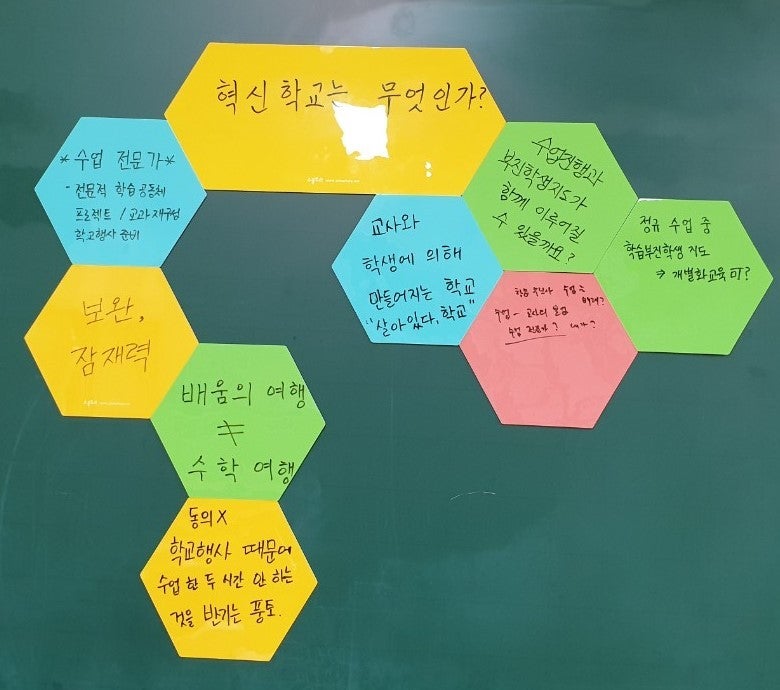 혁신학교는 무엇인가?
*수업 전문가*
- 전문적 학습공동체
프로젝트 / 교과재구성
학교행사 준비
보완,
잠재력
배움의 여행
≠
수학 여행
동의X
학교행사 때문에
수업 한 두 시간 안 하는
것을 반기는 풍토.
교사와
학생에 의해
만들어지는 학교
"살아있다, 학교"
수업진행과
부진학생지도가
함께 이루어질
수 있을까요?
정규 수업 중
학습부진학생 지도
⇒ 개별화교육 OT?
수업는
수업 - 교사의 본업
수업 전문가?